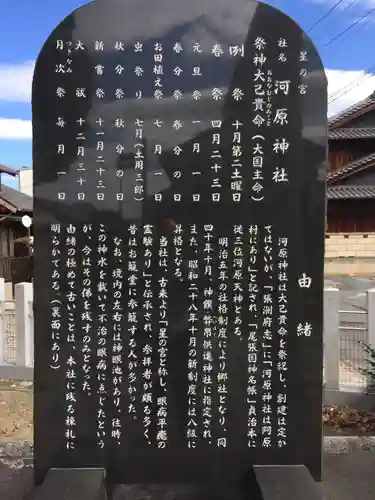 星の宮
社名 河原神社
祭神大己貴命（大国主命）
おおなむちのみこと
例祭 十月第二土曜日
春祭 四月二十三日
元旦祭 一月一日
春分祭 春分の日
お田植え祭 七月一日
虫祭り 七月（土用三郎）
秋分祭 秋分の日
新嘗祭 十一月二十三日
大祓 十二月三十日
月次祭 毎月一日
つきなみ
由緒
河原神社は大己貴命を祭祀し、創建は定か
ではないが、「張洲府志」に「河原神社は阿原
村にあり」と記され、「尾張国神名帳」貞治本に
従三位河原天神とある。
明治五年の社格制度により郷社となり、同
四十年十月、神饌、幣帛供進神社に指定され、
また、昭和二十八年十月の新制度には八級に
昇格となる。
当社は、古来より「星の宮」と称し、眼病平癒の
霊験あり」と伝承され、参拝者が頗る多く、
昔はお籠堂に参籠する人が多かった。
なお、境内の左右には神眼池があり、往時、
この神水を戴いて不治の眼病に点じたという
が、今はその俤を残すのみとなった。
由緒の極めて古いことは、本社に残る棟札に
明らかである（裏面にあり）